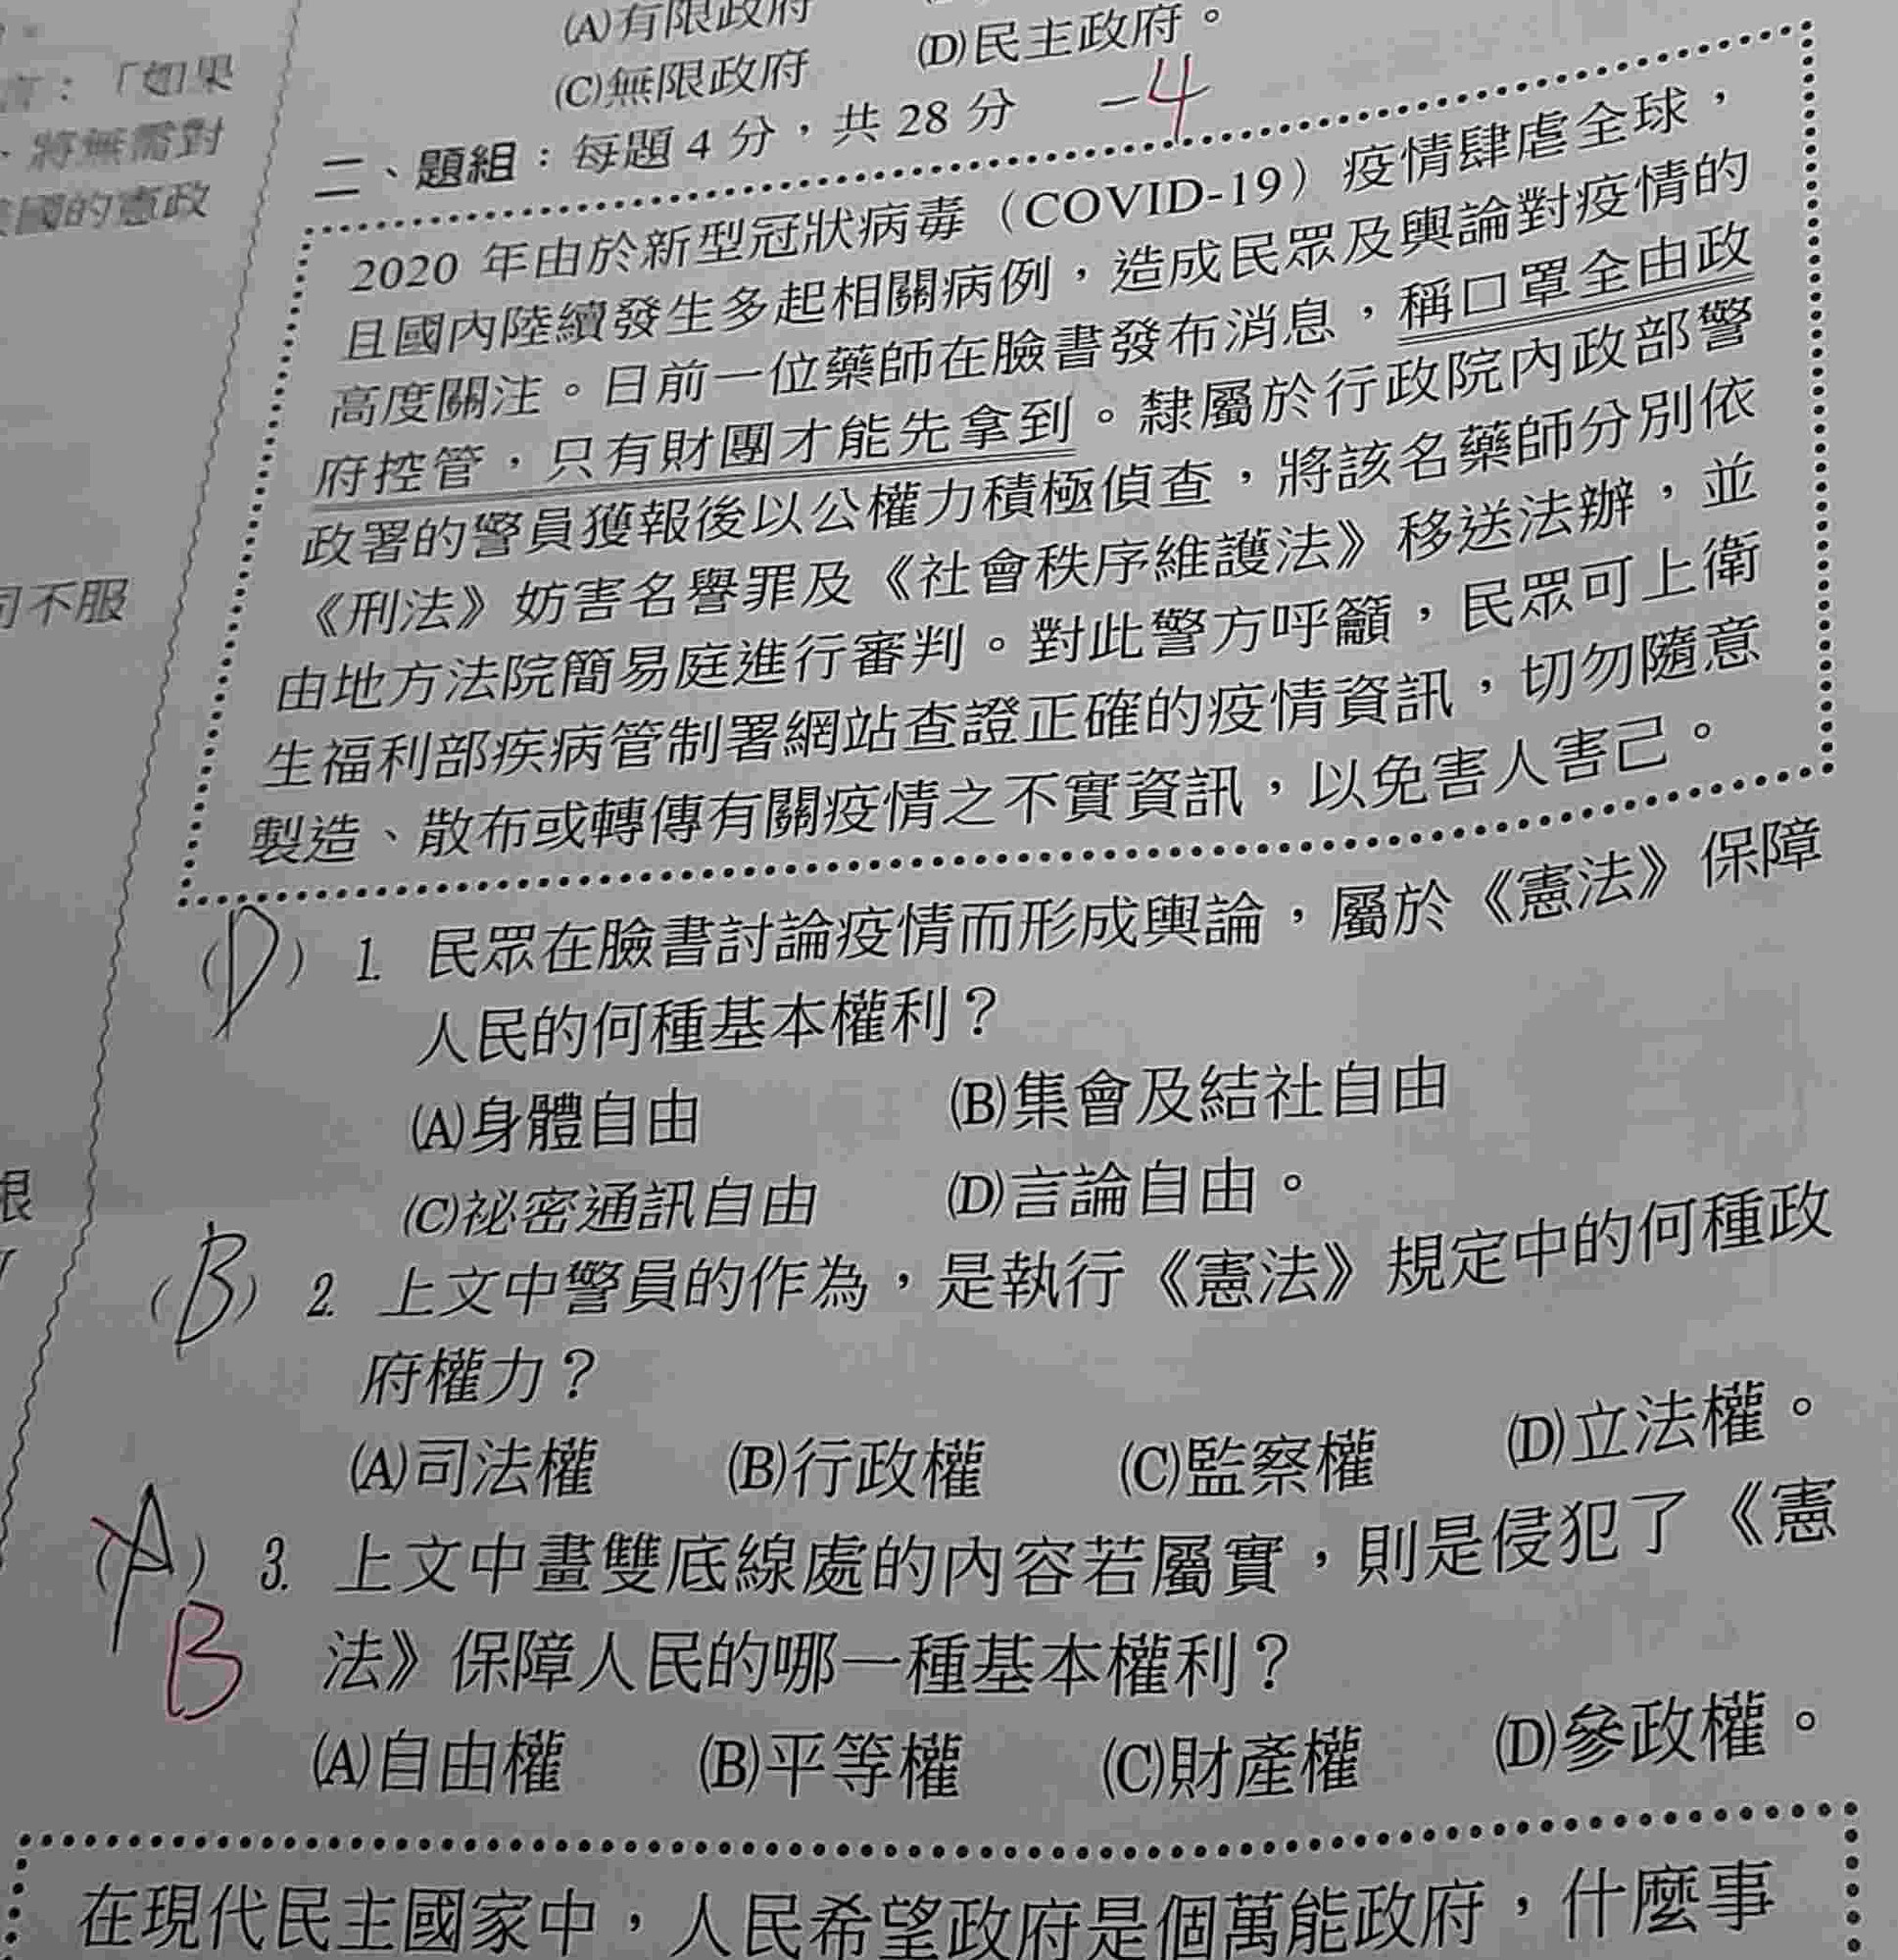 (A)有限政府
(C)無限政府 (D)民主政府。
：「如果
、將無需對
國的憲政
二、題組：每題 4 分，共 28 分 -4
2020 年由於新型冠狀病毒（COVID-19）疫情肆虐全球，
且國內陸續發生多起相關病例，造成民眾及輿論對疫情的
高度關注。日前一位藥師在臉書發布消息，稱口罩全由政
府控管，只有財團才能先拿到。隸屬於行政院內政部警
政署的警員獲報後以公權力積極偵查，將該名藥師分別依
《刑法》妨害名譽罪及《社會秩序維護法》移送法辦，並
由地方法院簡易庭進行審判。對此警方呼籲，民眾可上衛
生福利部疾病管制署網站查證正確的疫情資訊，切勿隨意
製造、散布或轉傳有關疫情之不實資訊，以免害人害己。
不服
(D) 1. 民眾在臉書討論疫情而形成輿論，屬於《憲法》保障
人民的何種基本權利？
(A)身體自由 (B)集會及結社自由
(C)祕密通訊自由 (D)言論自由。
(B) 2. 上文中警員的作為，是執行《憲法》規定中的何種政
府權力？
(A)司法權 (B)行政權 (C)監察權 (D)立法權。
(A) 3. 上文中畫雙底線處的內容若屬實，則是侵犯了《憲
B 法》保障人民的哪一種基本權利？
(A)自由權 (B)平等權 (C)財產權 (D)參政權。
在現代民主國家中，人民希望政府是個萬能政府，什麼事